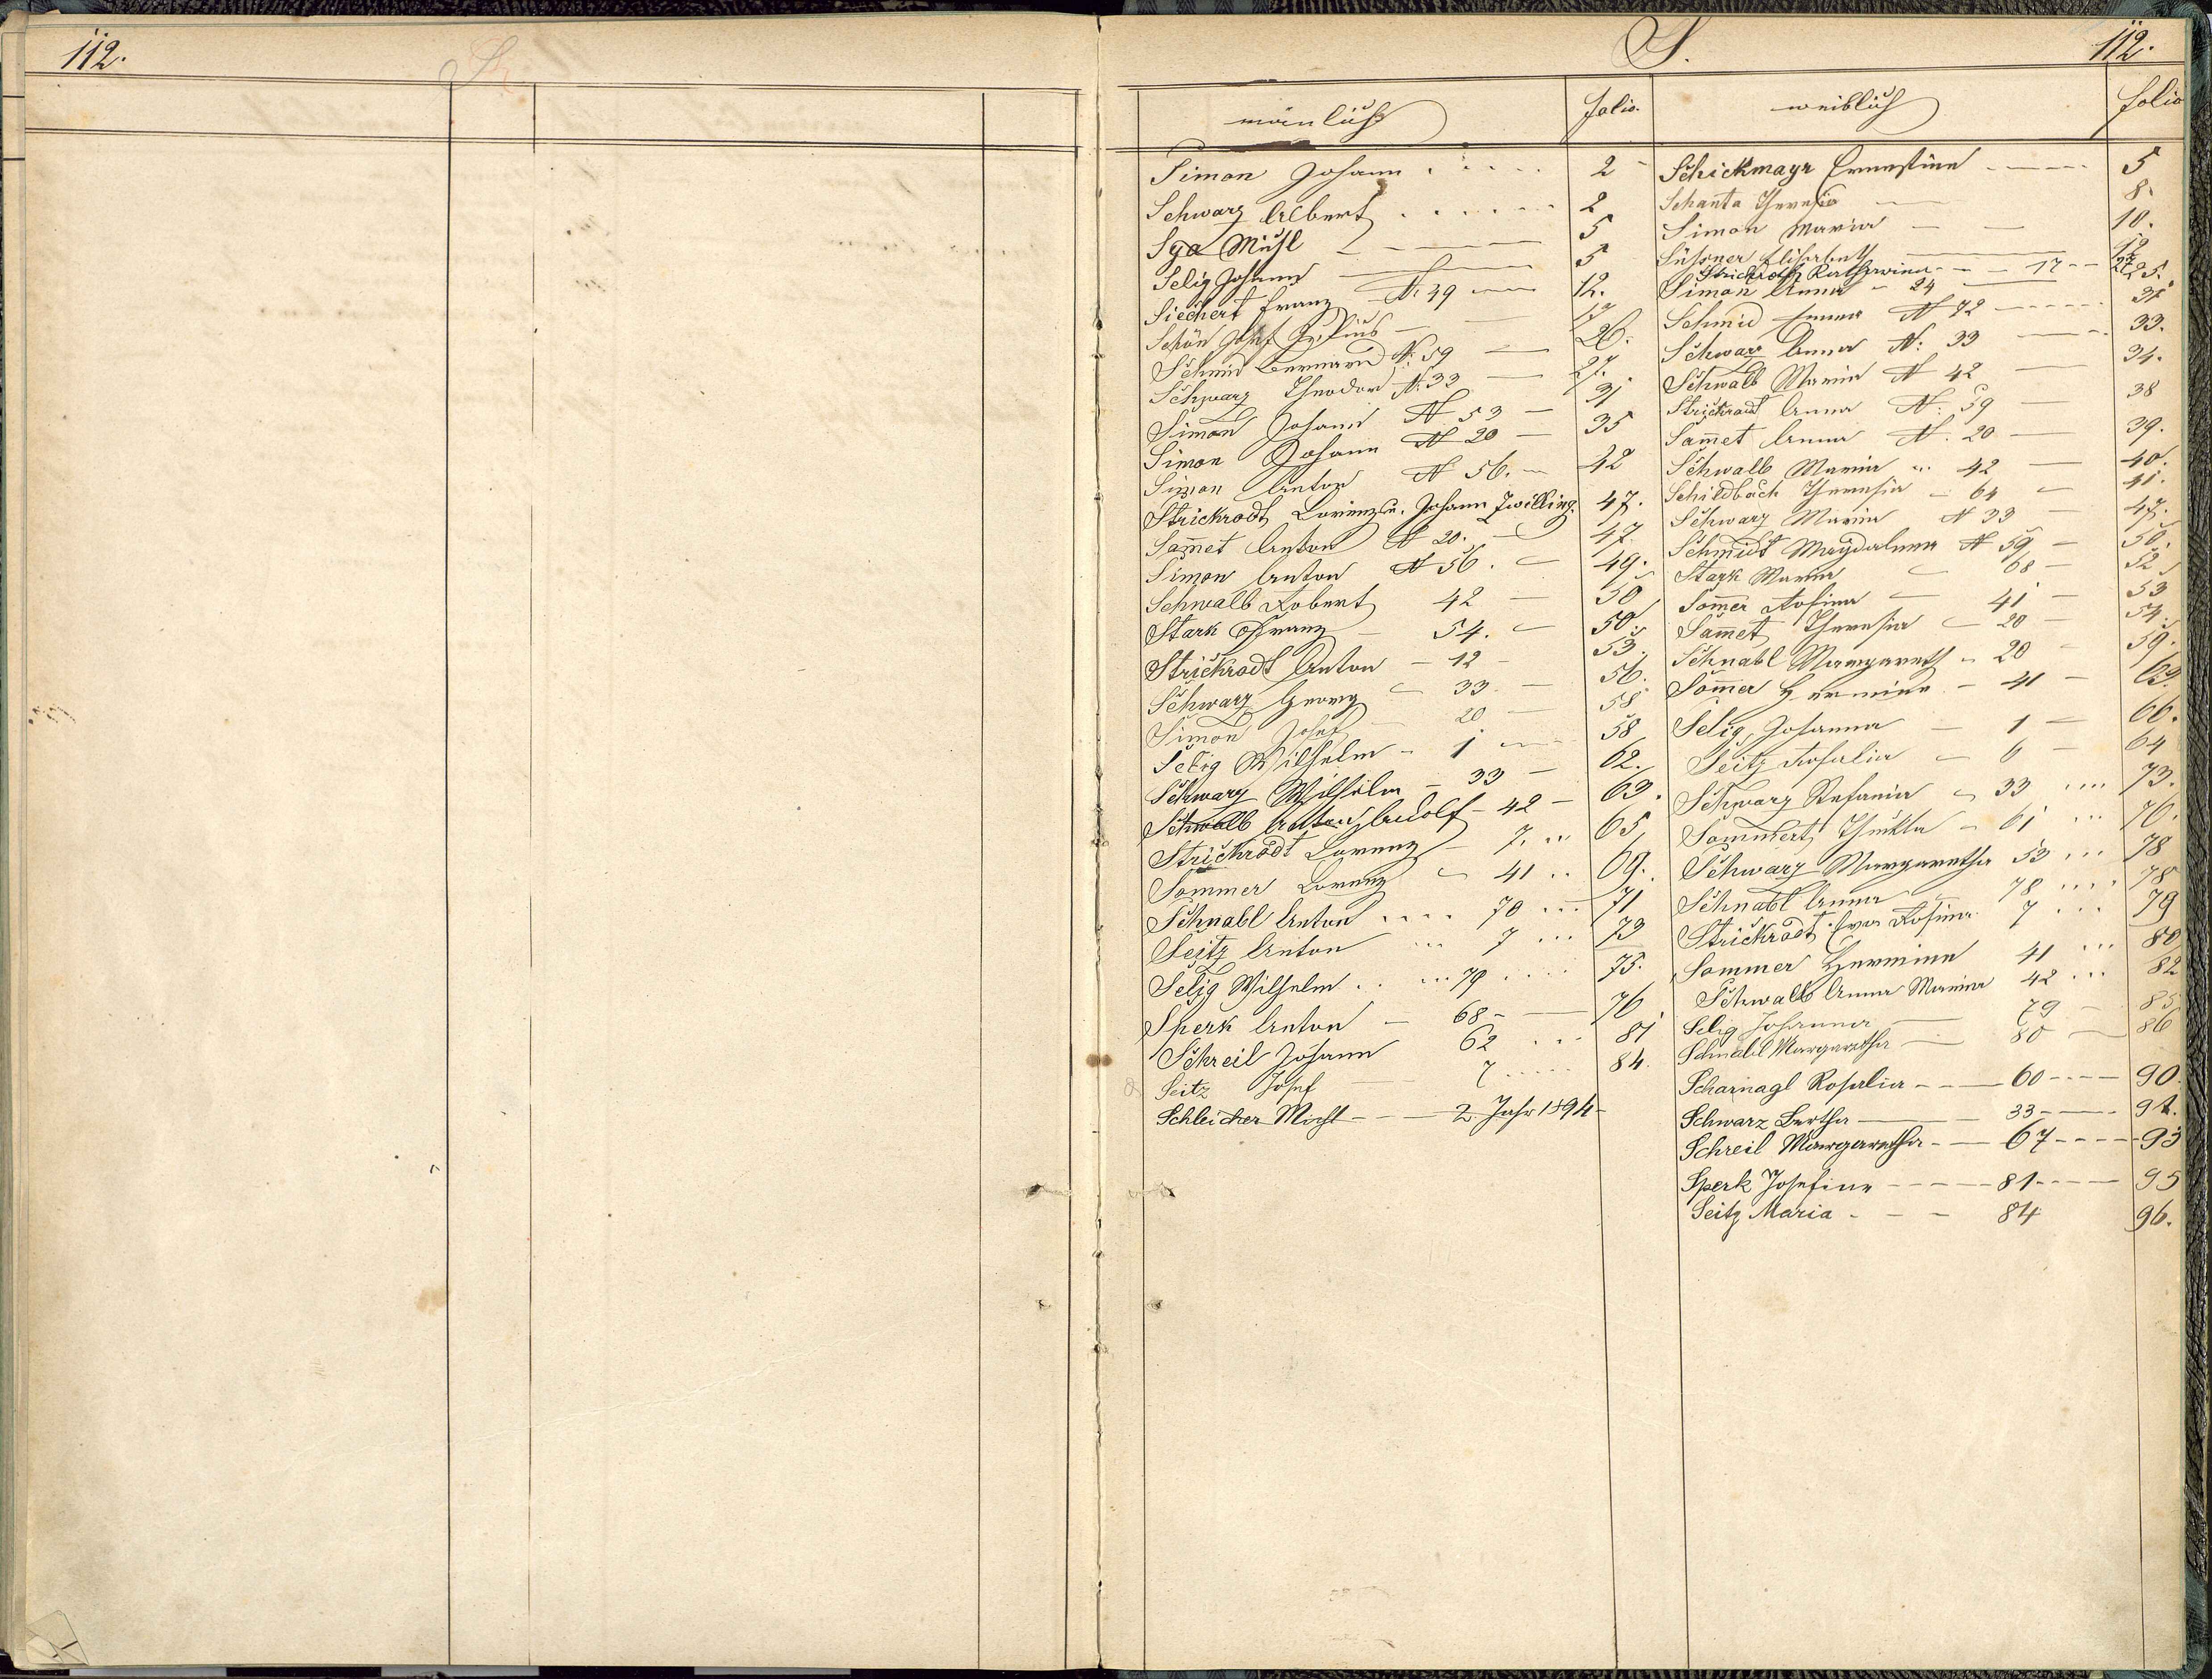 112.
S.
112.
mänlich
folio.
weiblich
folio
Simon Johann . . . . 2
Schwarz Albert . . . . . . 2
Sya 5
Selig Johann 5
Siechert Franz N. 49 12.
Schön Josef Julius
Schmid Bernard N. 59 26.
Schwarz Theodor N. 33 27.
Simon Johann N 53 31
Simon Johann N 20 35
Simon Anton N 56. 42
Strickrodt Lorenz u. Johann Zwilling. 47.
Sam̄et Anton N 20. 47.
Simon Anton N 56. 49.
Schwalb Robert 42 50
Stark Franz 54. 50.
Strickrodt Anton 12 53.
Schwarz Georg 33 56.
Simon Josef 20 58
Selig Wilhelm 1 58
Schwarz Wilhelm 33 62.
Schwalb Anton Rudolf 42 63.
Strickrodt Lorenz 7. 65
Sommer Lorenz 41 69.
Schnabl Anton . . . . 70 71
Seitz Anton 7 . . . 73
Selig Wilhelm . . . . 79 75.
Sperk Anton 68 76
Schreil Johann 62 . . . 81
Seitz Josef 7 . . . . . 84.
Schleicher Michl 2. Jahr 1894
Schickmayr Ernestine 5
Schanta Theresia 8.
Simon Maria 10.
Elisabeth
Strickrodt Katharina 17
Simon Anna 24 25.
Schmid Emma N 72 31
Schwarz Anna N. 33 33.
Schwalb Maria N 42 34.
Strickrodt Anna N. 59 38
Sam̄et Anna N. 20 39.
Schwalb Maria 42 40.
Schildbach Theresia 64 41.
Schwarz Maria N 33 47.
Schmidt Magdalena N 59 50.
Stark Maria 68 52
Som̄er Rosina 41 53
Sam̄et Theresia 20 54.
Schnabl Margareth 20 59.
Som̄er Hermine 41 63.
Selig Johanna 1 66.
Seitz Rosalia 6 64
Schwarz Stefania 33 . . . . 73.
Sommert Thekla 61 . . . 76.
Schwarz Margaretha 53 . . . 78
Schnabl Anna 78 . . . . 78
Strickrodt Eva Rosina 7 . . . 79
Sommer Hermine 41 . . . 80
Schwalb Anna Maria 42 . . . 82
Selig Johanna 79 85
Schnabl Margaretha 80 86
Scharnagl Rosalia 60 90.
Schwarz Bertha 33 92.
Schreil Margaretha 67 93
Sperk Josefine 81 95
Seitz Maria 84 96.